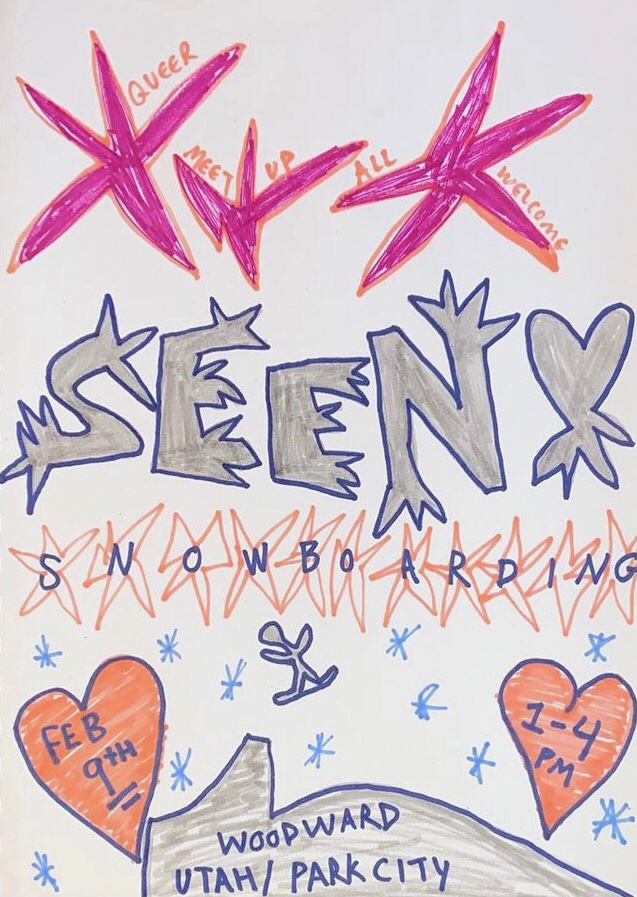 QUEER
MEET UP
ALL
WELCOME
SEEN
SNOWBOARDING
FEB
9TH
1-4
PM
WOODWARD
UTAH/ PARK CITY